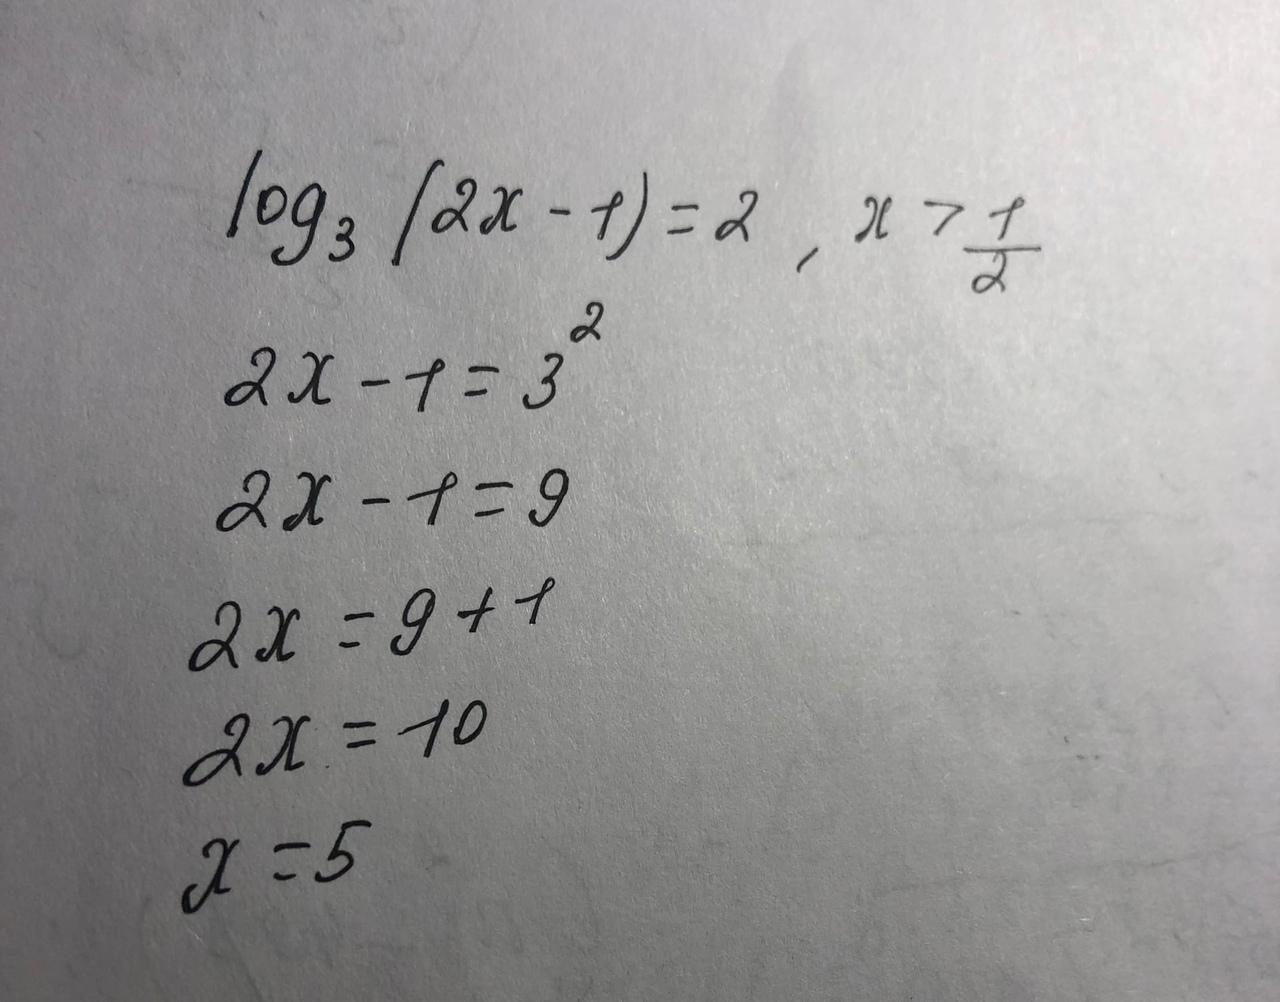 log₃ (2x - 1) = 2 , x > 1/2
2x - 1 = 3²
2x - 1 = 9
2x = 9 + 1
2x = 10
x = 5